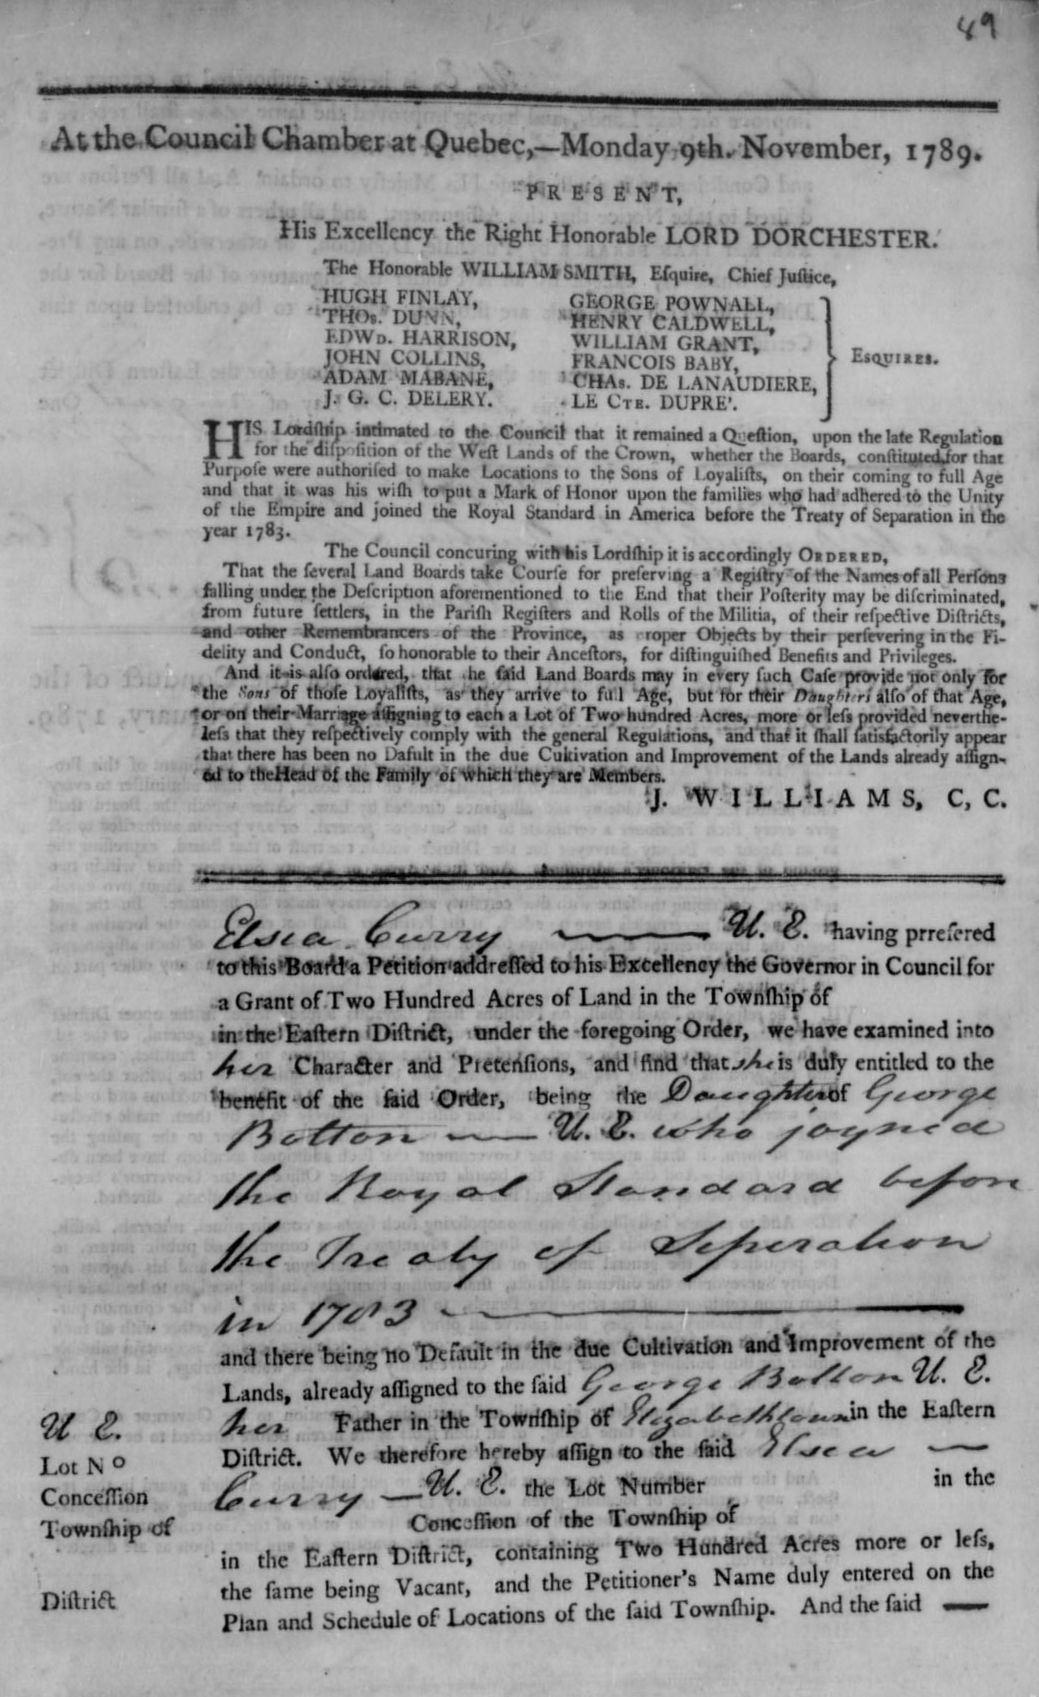 49
At the Council Chamber at Quebec,—Monday 9th. November, 1789.
PRESENT,
His Excellency the Right Honorable LORD DORCHESTER.
The Honorable WILLIAM SMITH, Eſquire, Chief Juſtice,
HUGH FINLAY, GEORGE POWNALL,
THOs. DUNN, HENRY CALDWELL,
EDWD. HARRISON, WILLIAM GRANT,
JOHN COLLINS, FRANCOIS BABY, ESQUIRES.
ADAM MABANE, CHAs. DE LANAUDIERE,
J. G. C. DELERY. LE CTE. DUPRE'.
HIS Lordſhip intimated to the Council that it remained a Queſtion, upon the late Regulation
for the diſpoſition of the Weſt Lands of the Crown, whether the Boards, conſtituted for that
Purpoſe were authoriſed to make Locations to the Sons of Loyaliſts, on their coming to full Age
and that it was his wiſh to put a Mark of Honor upon the families who had adhered to the Unity
of the Empire and joined the Royal Standard in America before the Treaty of Separation in the
year 1783.
The Council concuring with his Lordſhip it is accordingly ORDERED,
That the ſeveral Land Boards take Courſe for preſerving a Regiſtry of the Names of all Perſons
falling under the Deſcription aforementioned to the End that their Poſterity may be diſcriminated,
from future ſettlers, in the Pariſh Regiſters and Rolls of the Militia, of their reſpective Diſtricts,
and other Remembrancers of the Province, as roper Objects by their perſevering in the Fi-
delity and Conduct, ſo honorable to their Anceſtors, for diſtinguiſhed Benefits and Privileges.
And it is alſo ordered, that he ſaid Land Boards may in every ſuch Caſe provide not only for
the Sons of thoſe Loyaliſts, as they arrive to full Age, but for their Daughters alſo of that Age,
or on their Marriage aſſigning to each a Lot of Two hundred Acres, more or leſs provided neverthe-
leſs that they reſpectively comply with the general Regulations, and that it ſhall ſatisfactorily appear
that there has been no Dafult in the due Cultivation and Improvement of the Lands already aſſign-
ed to theHead of the Family of which they are Members.
J. WILLIAMS, C, C.
Elsea Curry — U. E. having prreſered
to this Board a Petition addreſſed to his Excellency the Governor in Council for
a Grant of Two Hundred Acres of Land in the Townſhip of
in the Eaſtern Diſtrict, under the foregoing Order, we have examined into
her Character and Pretenſions, and find that she is duly entitled to the
benefit of the ſaid Order, being the Daughter of George
Bolton — U. E. who joyned
the Royal Standard before
the Treaty of Seperation
in 1783 —
and there being no Default in the due Cultivation and Improvement of the
Lands, already aſſigned to the ſaid George Bolton U. E.
her Father in the Townſhip of Elizabethtown in the Eaſtern
Diſtrict. We therefore hereby aſſign to the ſaid Elsea —
Curry — U. E. the Lot Number in the
Conceſſion of the Townſhip of
in the Eaſtern Diſtrict, containing Two Hundred Acres more or leſs,
the ſame being Vacant, and the Petitioner's Name duly entered on the
Plan and Schedule of Locations of the ſaid Townſhip. And the ſaid —
U E.
Lot No
Conceſſion
Townſhip of
Diſtrict